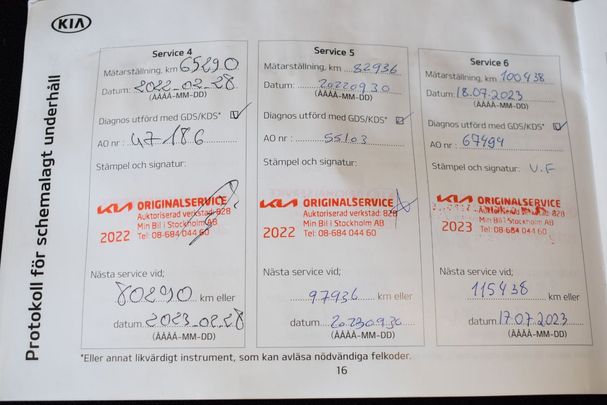 KIA
Protokoll för schemalagt underhåll
Service 4
Mätarställning, km 65290
Datum: 2022-02-28
(ÅÅÅÅ-MM-DD)
Diagnos utförd med GDS/KDS*
AO nr : 47186
Stämpel och signatur:
KIA ORIGINALSERVICE
Auktoriserad verkstad: 828
Min Bil i Stockholm AB
2022 Tel: 08-684 044 60
Nästa service vid;
80290 km eller
datum 2023-02-28
(ÅÅÅÅ-MM-DD)
Service 5
Mätarställning, km 82936
Datum: 20220930
(ÅÅÅÅ-MM-DD)
Diagnos utförd med GDS/KDS*
AO nr : 55103
Stämpel och signatur:
KIA ORIGINALSERVICE
Auktoriserad verkstad: 828
Min Bil i Stockholm AB
2022 Tel: 08-684 044 60
Nästa service vid;
97936 km eller
datum 20230930
(ÅÅÅÅ-MM-DD)
Service 6
Mätarställning, km 100438
Datum: 18.07.2023
(ÅÅÅÅ-MM-DD)
Diagnos utförd med GDS/KDS*
AO nr : 67494
Stämpel och signatur: V.F
KIA ORIGINALSERVICE
828
Min Bil i Stockholm AB
2023 Tel: 08-684 044 60
Nästa service vid;
115438 km eller
datum 17.07.2023
(ÅÅÅÅ-MM-DD)
*Eller annat likvärdigt instrument, som kan avläsa nödvändiga felkoder.
16